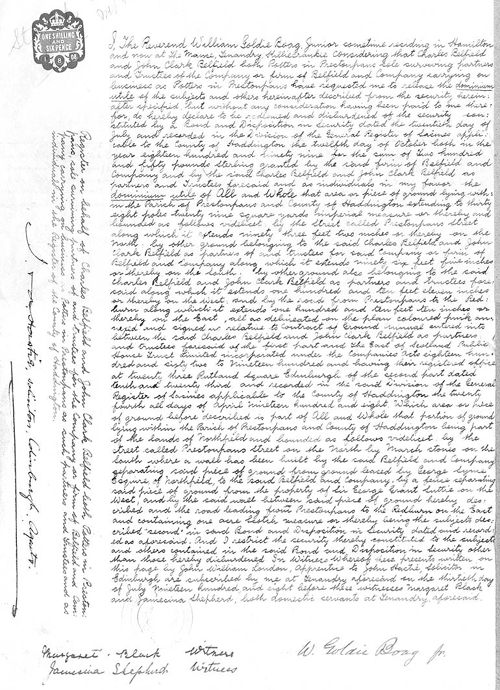 ONE SHILLING
AND
SIX PENCE
I The Reverend William Goldie Boag, Junior sometime residing in Hamilton
and now at The Manse, Tenandry Killiecrankie Considering that Charles Belfield
and John Clark Belfield both Potters in Prestonpans sole surviving partners
and Trustees of the Company or firm of Belfield and Company carrying on
business as Potters in Prestonpans have requested me to release the dominium
utile of the subjects and others hereinafter described from the security
after specified but without any consideration having been paid to me there-
for, do hereby declare to be redeemed and disburdened of the security con-
stituted by a Bond and Disposition in Security dated the twentieth day of
July and recorded in the division of the General Register of Sasines appli-
cable to the County of Haddington the twelfth day of October both in the
year eighteen hundred and ninety nine for the sum of hundred
and eighty pounds sterling granted by the said firm of Belfield and
Company and by the said Charles Belfield and John Clark Belfield as
partners and Trustees foresaid and as individuals in my favor the
dominium utile of All and Whole that area or piece of ground lying with-
in the Parish of Prestonpans and County of Haddington extending to thirty
eight poles twenty nine square yards imperial measure or thereby and
bounded as follows videlicet by the street called Prestonpans street
along which it extends ninety three feet two inches or thereby on the
North by other ground belonging to the said Charles Belfield and John
Clark Belfield as partners of and trustees for said Company or firm of
Belfield and Company along which it extends ninety six feet five inches
or thereby on the South by other ground also belonging to the said
Charles Belfield and John Clark Belfield as partners and trustees fore-
said along which it extends one hundred and ten feet eleven inches
or thereby on the West, and by the road from Prestonpans to the Red-
burn along which it extends one hundred and ten feet ten inches or
thereby on the East all as delineated on the plan coloured pink an-
nexed and signed as relative to Contract of Ground Annual entered into
between the said Charles Belfield and John Clark Belfield as partners
and trustees foresaid of the first part and The East of Scotland Public
House Trust Limited incorporated under the Companies Acts eighteen hun-
dred and sixty two to Nineteen hundred and having their registered office
at twenty three Rutland Square Edinburgh of the second part dated
tenth and twenty third and recorded in the said Division of the General
Register of Sasines applicable to the County of Haddington the twenty
fourth all days of April Nineteen hundred and eight Which area or piece
of ground before described is part of All and Whole that portion of ground
lying within the Parish of Prestonpans and County of Haddington being part
of the lands of Northfield and bounded as follows videlicet by the
street called Prestonpans street on the North by March stones on the
South where a wall has been built by the said Belfield and Company
separating said piece of ground from ground leased by George Syme
Esquire of Northfield, to the said Belfield and Company, by a fence separating
said piece of ground from the property of Sir George Grant Suttie on the
West, and by the road West between said piece of ground hereby des-
cribed and the road leading from Prestonpans to the Redburn on the East
and containing one acre Scotch measure or thereby being the subjects des-
cribed second in said Bond and Disposition in Security dated and record-
ed as aforesaid. And I restrict the security thereby constituted to the subjects
and others contained in the said Bond and Disposition in Security other
than those hereby disburdened In Witness Whereof these presents written on
this page by John William London, Apprentice to John Hastie, Solicitor in
Edinburgh are subscribed by me at Tenandry aforesaid on the thirtieth day
of July Nineteen hundred and eight before these witnesses Margaret Black
and Jamesina Shepherd, both domestic servants at Tenandry aforesaid.
Margaret Black Witness
Jamesina Shepherd Witness
W. Goldie Boag Jr.
Register on behalf of Charles Belfield and John Clark Belfield both Potters in Preston-
pans sole surviving partners of and Trustees for the Company or firm of Belfield and Com-
pany carrying on business as Potters in Prestonpans as such partners and trustees and as
individuals in the Register of the County of Haddington.
Solicitor, Edinburgh, Agents.